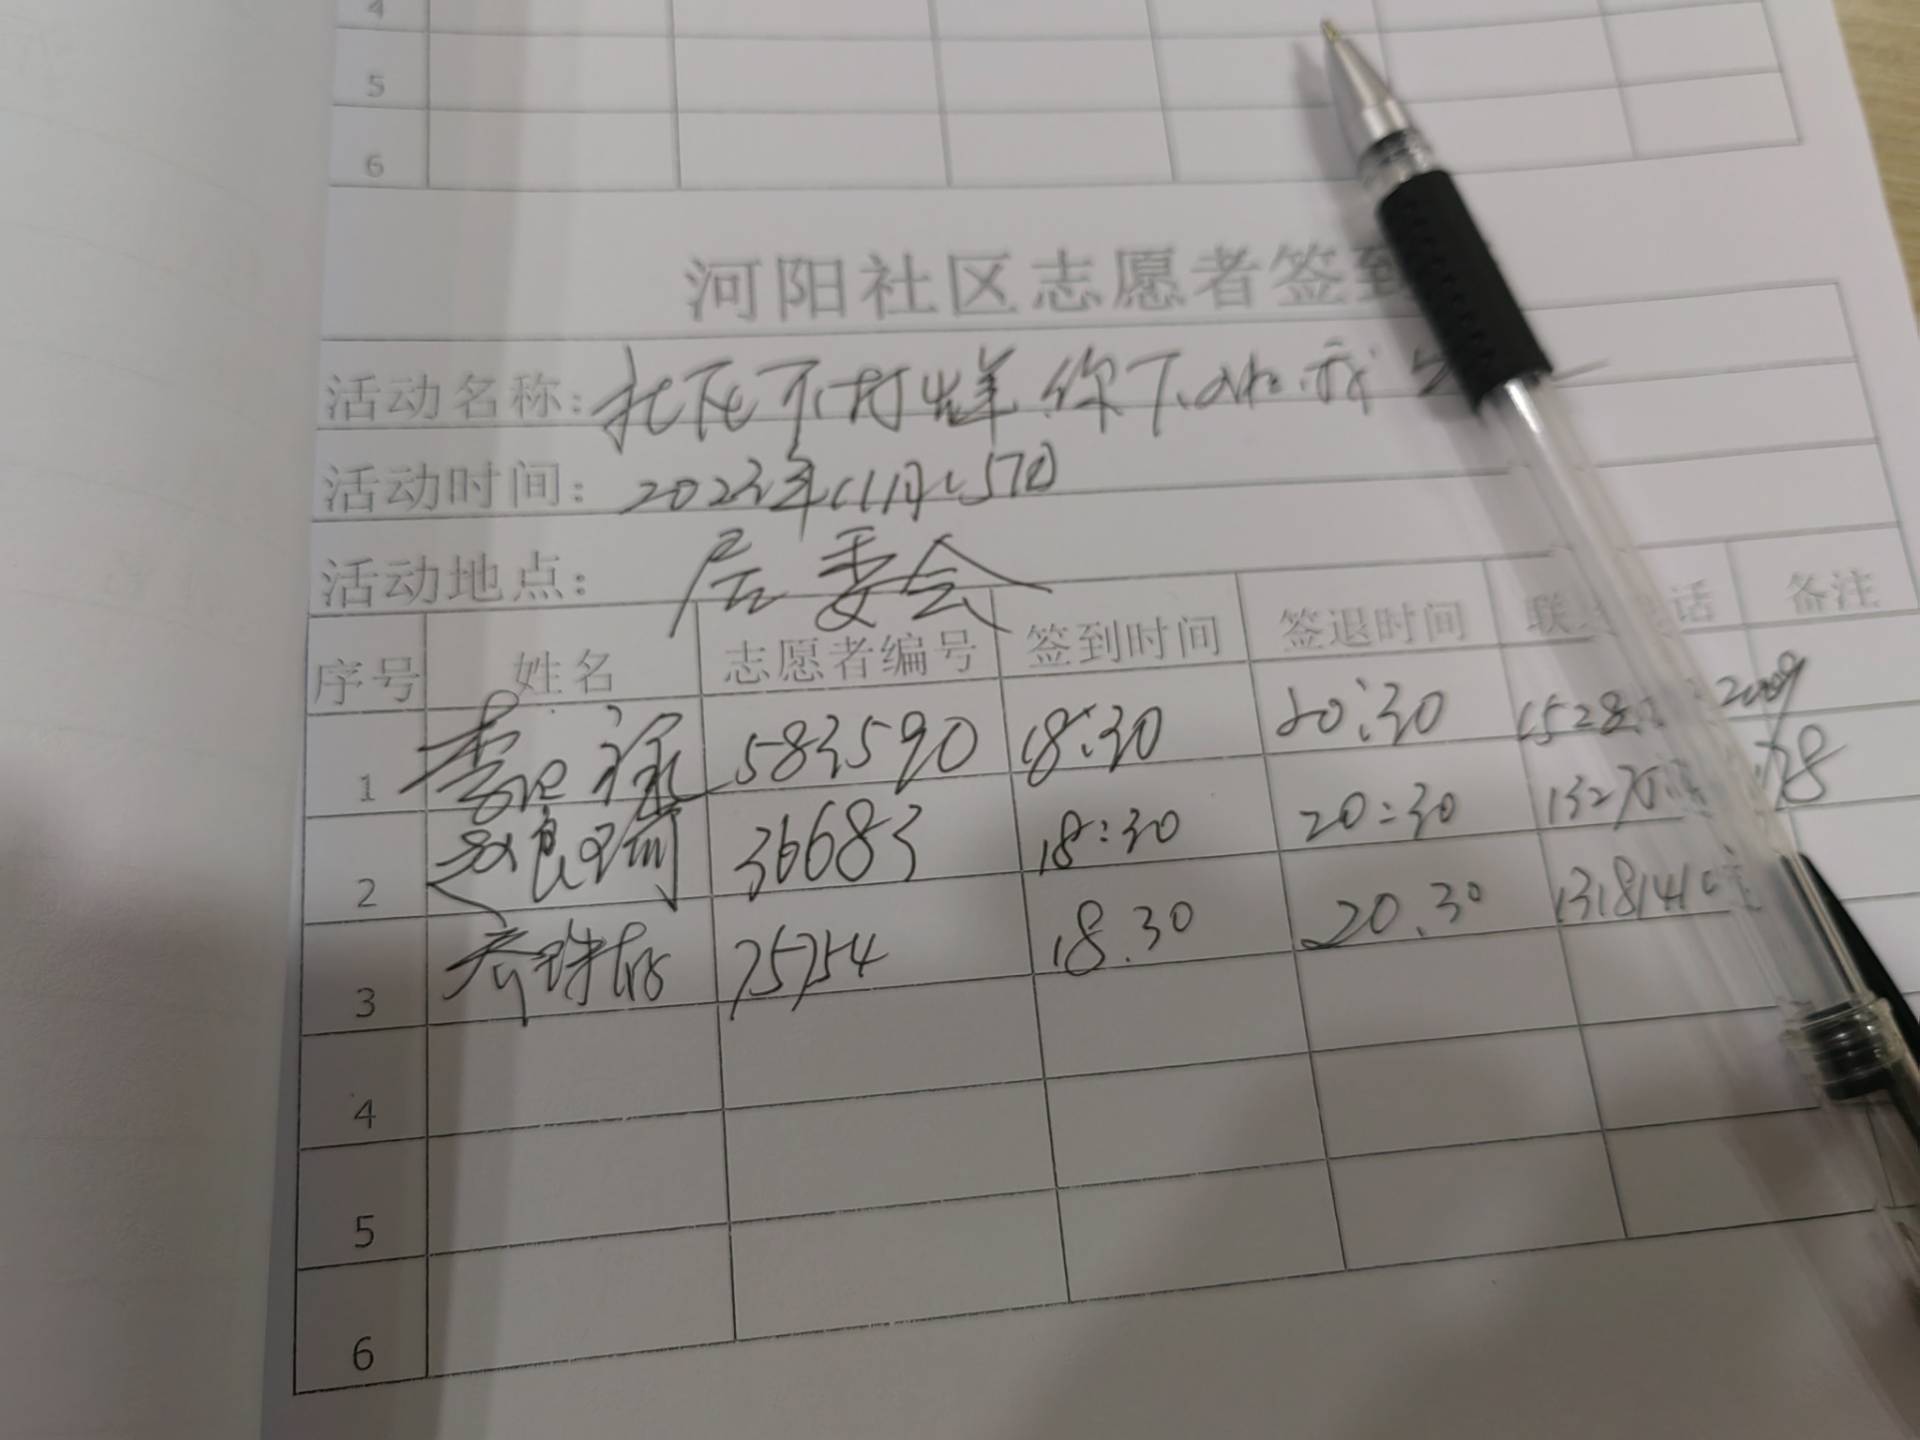 4
5
6
河阳社区志愿者签到
活动名称: 社区不打烊 你下班我
活动时间: 2023年11月15日
活动地点: 居委会
序号 姓名 志愿者编号 签到时间 签退时间 联 话 备注
1 583590 18:30 20:30 1528 2009
2 赵良瑞 36683 18:30 20:30 132 78
3 75754 18.30 20.30 1318141
4
5
6